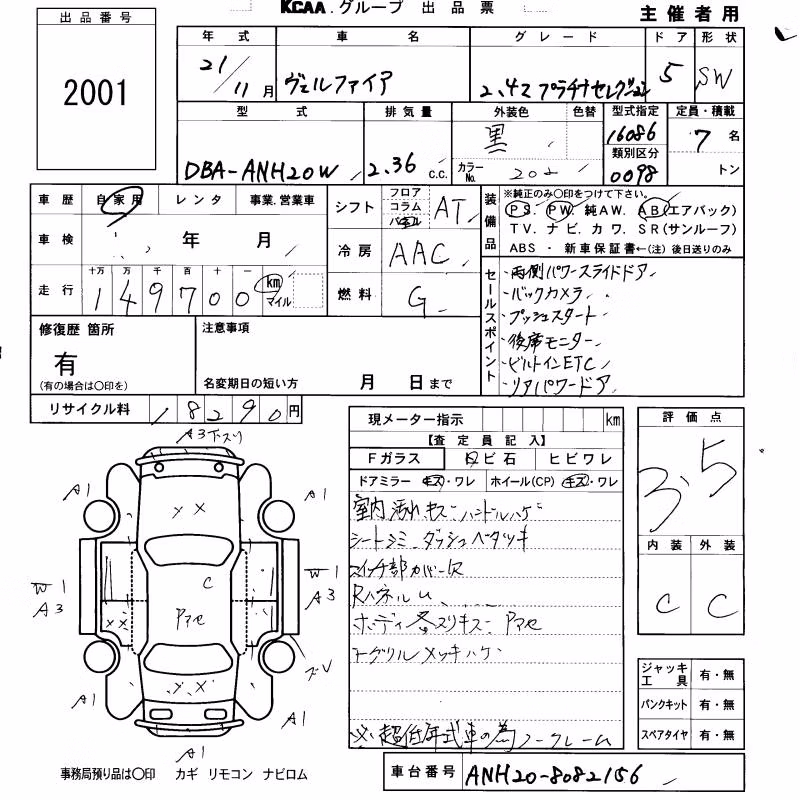 KCAA.グループ 出品票
主催者用
出品番号
2001
年式 車名 グレード ドア 形状
21/11月 ヴェルファイア 2.4Z プラチナセレクション 5 SW
型式 排気量 外装色 色替 型式指定 定員・積載
DBA-ANH20W 2.36 c.c. 黒 16086 7名
カラーNo. 202 類別区分 トン
0098
車歴 自家用 レンタ 事業.営業車
車検 年 月
走行 十万 万 千 百 十 一
149700 km マイル
シフト フロア コラム パネル AT
冷房 AAC
燃料 G
装備品 ※純正のみ〇印をつけて下さい。
PS. PW. 純AW. AB(エアバック)
TV. ナビ. カワ. SR(サンルーフ)
ABS ・ 新車保証書←(注) 後日送りのみ
セールスポイント
・両側パワースライドドア
・バックカメラ
・プッシュスタート
・後席モニター
・ビルトインETC
・リアパワードア
修復歴 箇所
有
(有の場合は〇印を)
注意事項
名変期日の短い方 月 日まで
リサイクル料 18290円
現メーター指示 km
【査定員記入】
Fガラス 飛ビ石 ヒビワレ
ドアミラー キズ・ワレ ホイール(CP) キズ・ワレ
室内汚れキズ ハンドルハゲ
シートシミ ダッシュベタツキ
スイッチ部カバー欠
Rパネルu
ボディ各スリキズ アセ
グリルメッキハゲ
※超低年式車の為ノークレーム
評価点
3.5
内装 外装
C C
ジャッキ工具 有・無
パンクキット 有・無
スペアタイヤ 有・無
車台番号 ANH20-8082156
A3下スリ
A1
A1
XX
W1
A3
C
W1
A3
アセ
XX
A1
XX
A1
A1
事務局預り品は〇印 カギ リモコン ナビロム